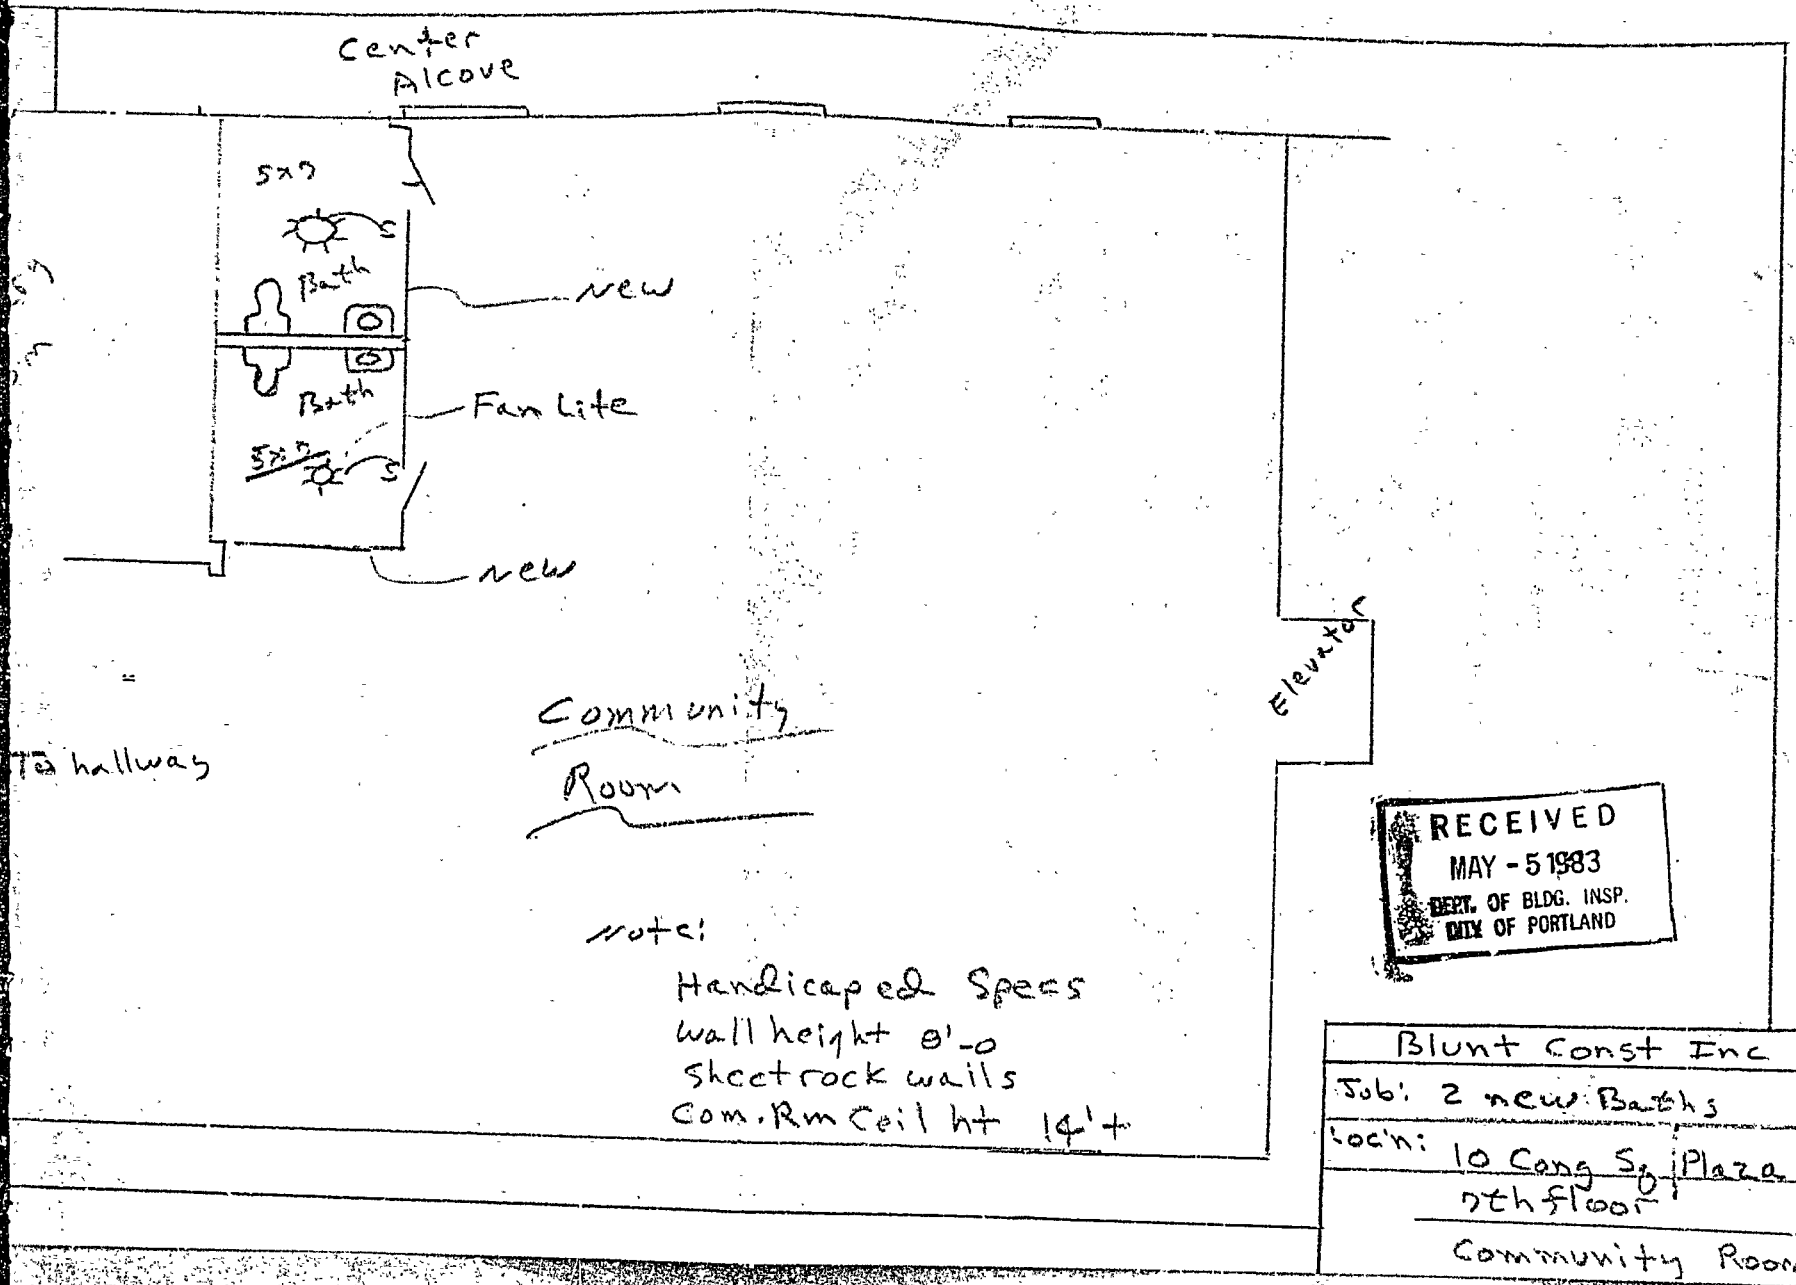 Center
Alcove
5x7
S
Bath
New
Bath
Fan Lite
5x7
S
New
Elevator
Community
Room
To hallway
RECEIVED
MAY - 5 1983
DEPT. OF BLDG. INSP.
CITY OF PORTLAND
Note:
Handicaped Specs
Wall height 8'-0
Sheetrock walls
Com. Rm Ceil ht 14'+
Blunt Const Inc
Job: 2 new Baths
Loc'n: 10 Cong Sq Plaza
7th floor
Community Room